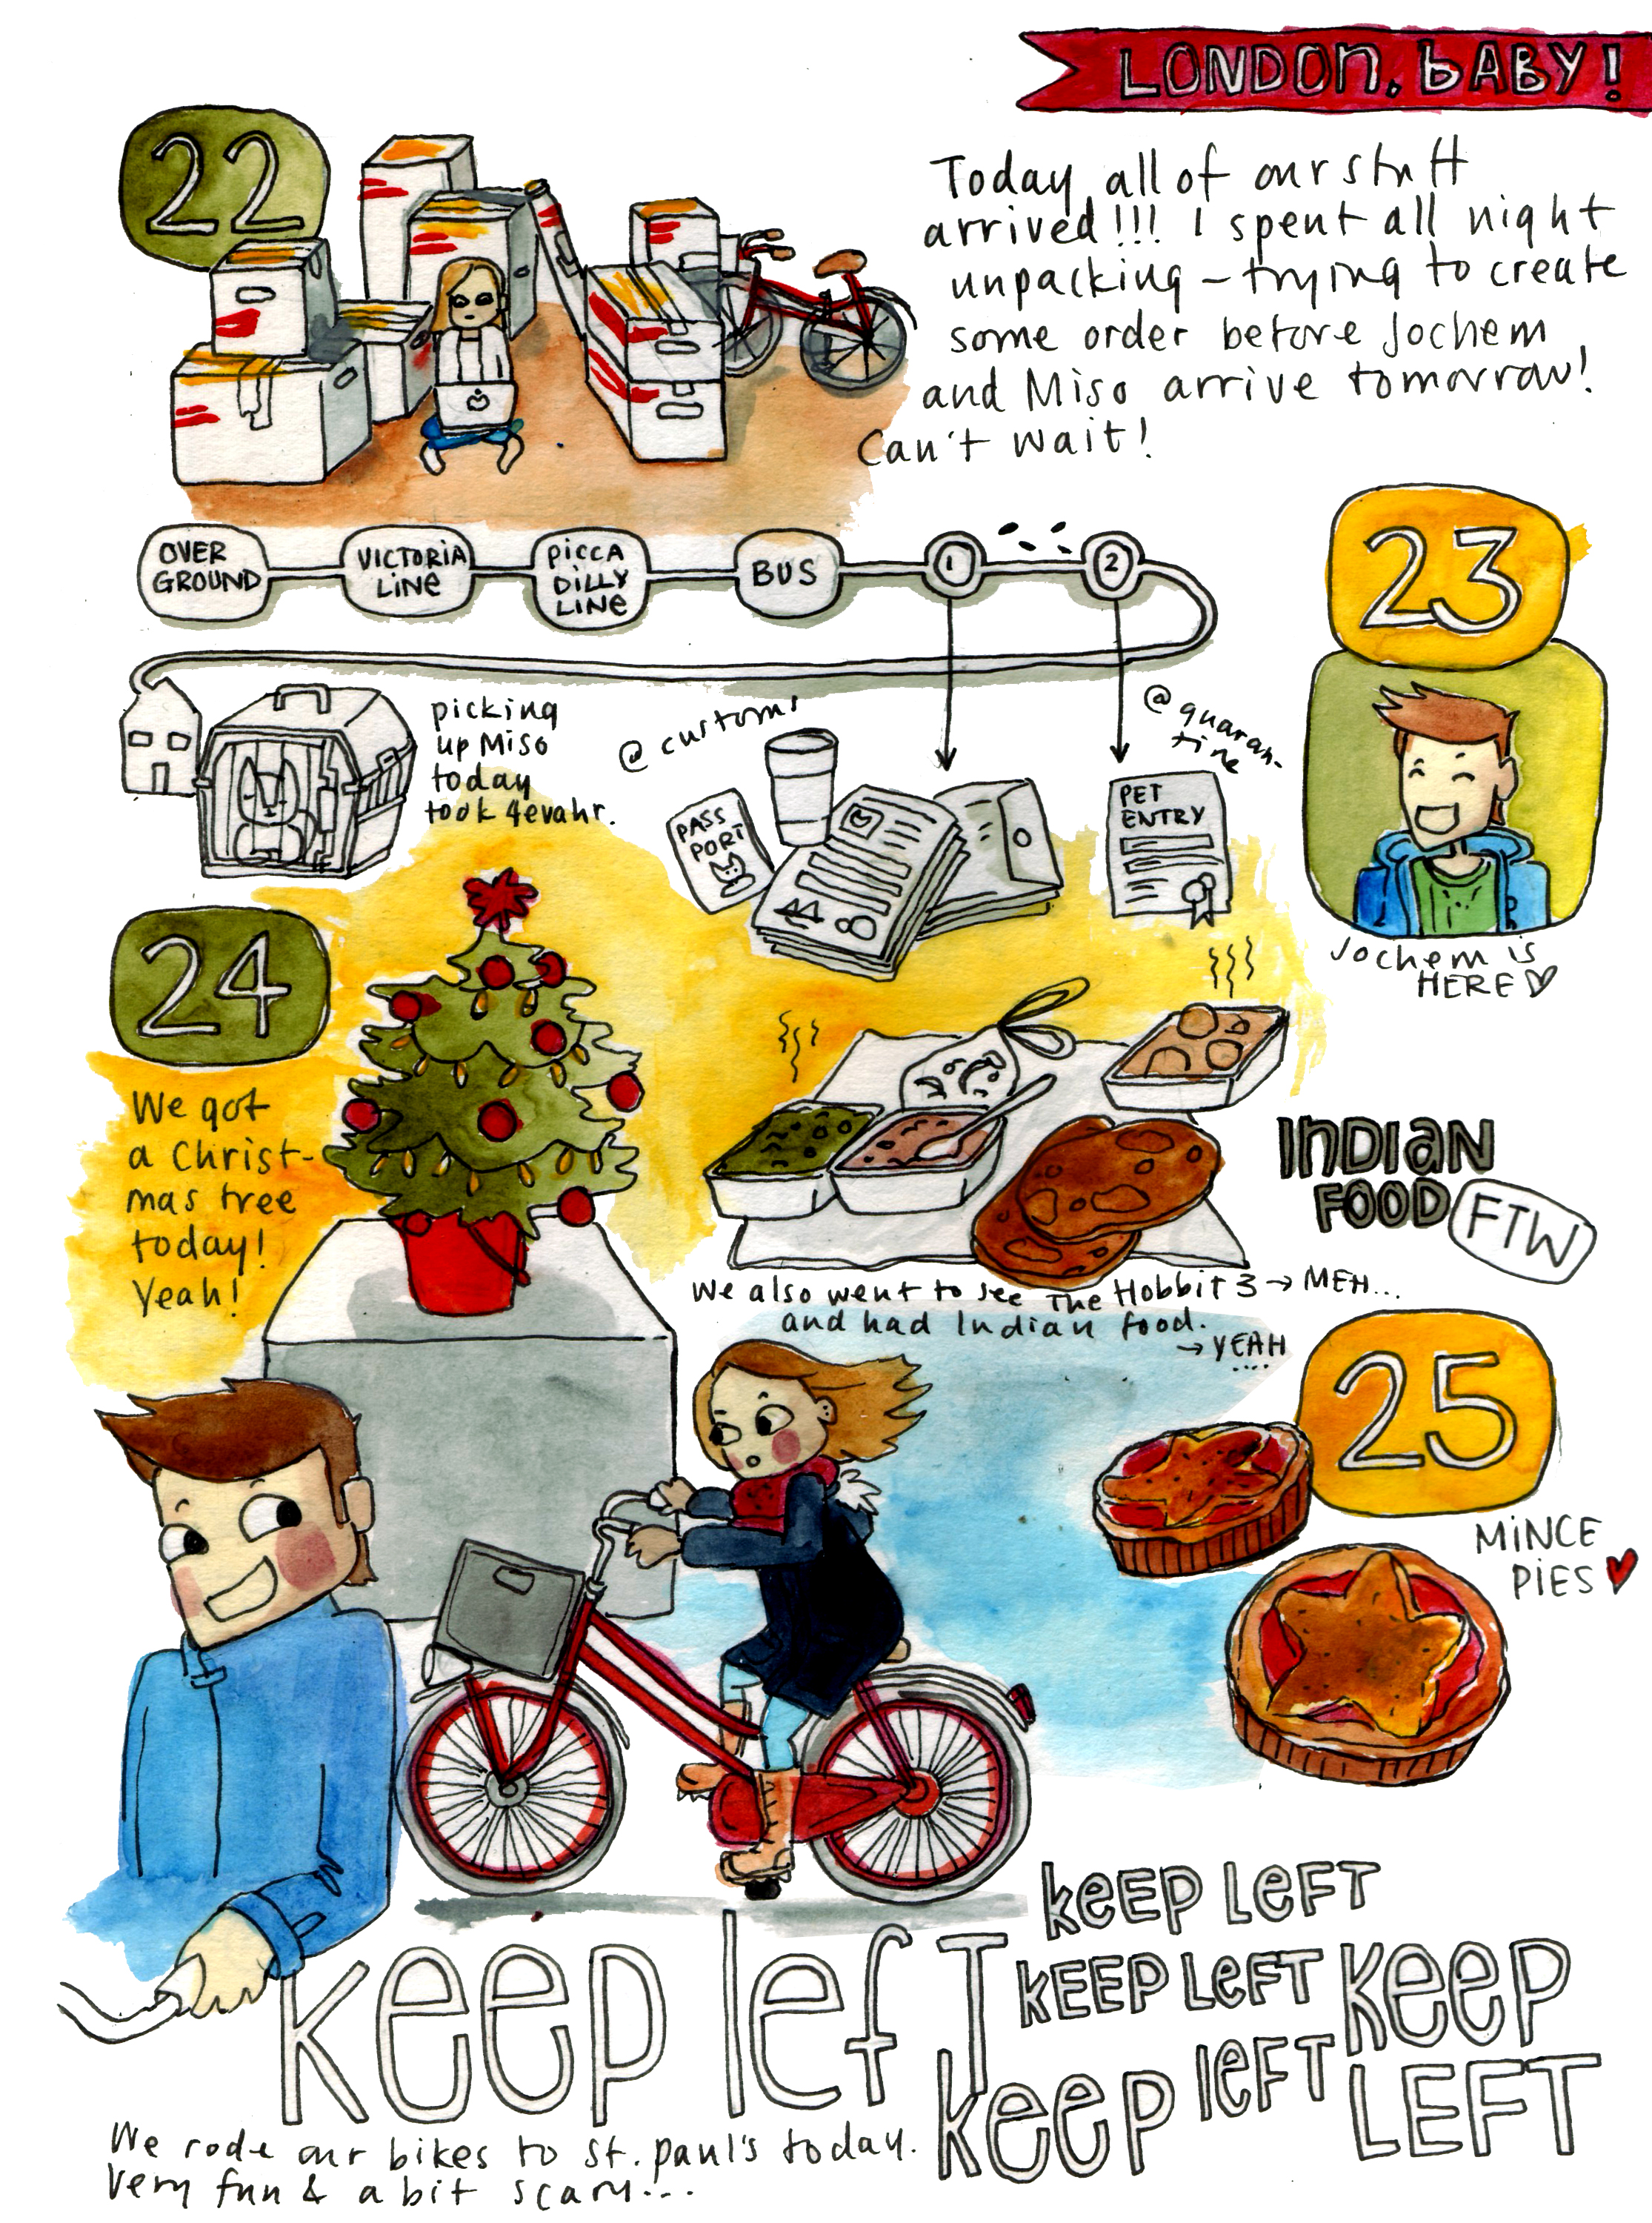 LONDON, BABY!
22
Today all of our stuff
arrived!!! I spent all night
unpacking – trying to create
some order before Jochem
and Miso arrive tomorrow!
Can't wait!
OVER
GROUND
VICTORIA
LINE
PICCA
DILLY
LINE
BUS
1
2
23
picking
up Miso
today
took 4evahr.
@ customs
PASS
PORT
@ quaran-
tine
PET
ENTRY
Jochem is
HERE ♡
24
We got
a Christ-
mas tree
today!
Yeah!
INDIAN
FOOD
FTW
We also went to see The Hobbit 3 → MEH...
and had Indian food.
→ YEAH
....
25
MINCE
PIES ♥
keep left
KEEP LEFT
KEEP LEFT
keep left
KEEP
LEFT
We rode our bikes to St. Paul's today.
Very fun & a bit scary...